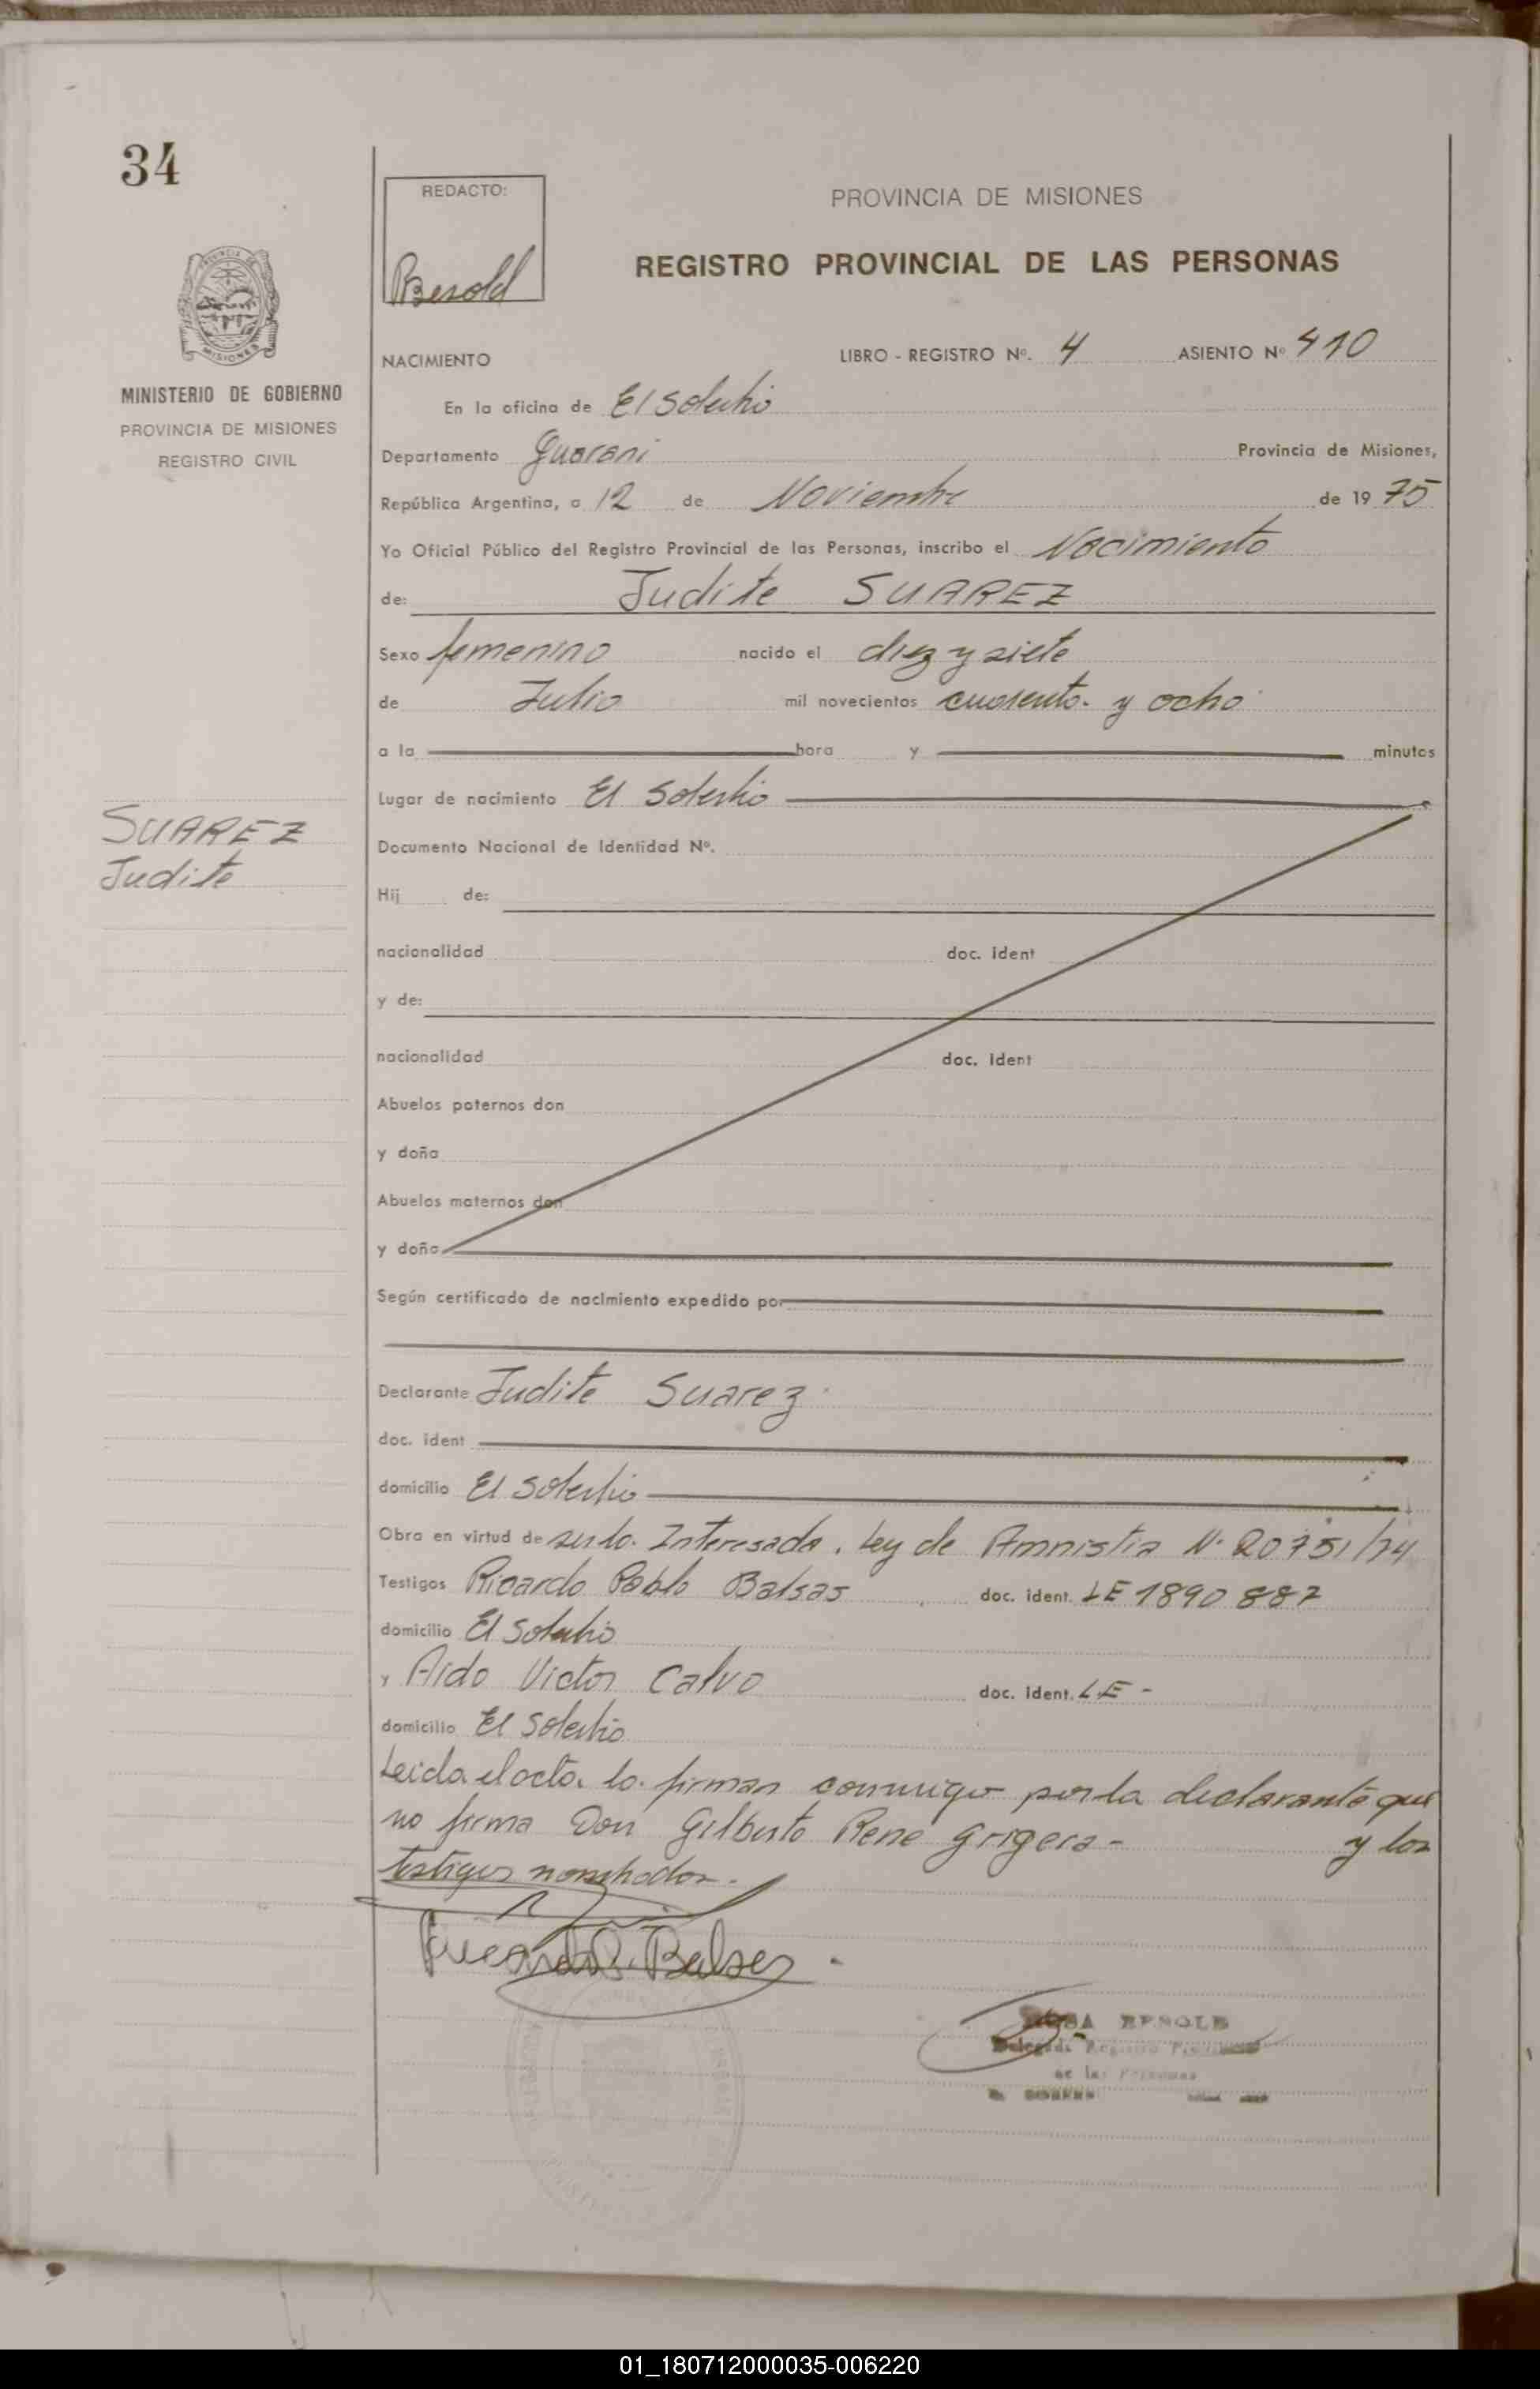 34
REDACTO:
Besold
PROVINCIA DE MISIONES
REGISTRO PROVINCIAL DE LAS PERSONAS
MISIONES
MINISTERIO DE GOBIERNO
PROVINCIA DE MISIONES
REGISTRO CIVIL
NACIMIENTO LIBRO - REGISTRO Nº. 4 ASIENTO Nº 410
En la oficina de El Soberbio
Departamento Guarani Provincia de Misiones,
República Argentina, a 12 de Noviembre de 19 75
Yo Oficial Público del Registro Provincial de las Personas, inscribo el Nacimiento
de: Judite SUAREZ
Sexo femenino nacido el diez y siete
de Julio mil novecientos cuarenta y ocho
a la hora y minutos
Lugar de nacimiento El Soberbio
SUAREZ
Judite
Documento Nacional de Identidad Nº.
Hij de:
nacionalidad doc. ident
y de:
nacionalidad doc. ident
Abuelos paternos don
y doña
Abuelos maternos don
y doña
Según certificado de nacimiento expedido por
Declarante Judite Suarez
doc. ident
domicilio El Soberbio
Obra en virtud de ser la Interesada. Ley de Amnistia N. 20751/74
Testigos Ricardo Pablo Balsas doc. ident. LE 1890 887
domicilio El Soberbio
y Aldo Victor Calvo doc. ident. LE -
domicilio El Soberbio
Leida el acta la firman conmigo por la declarante que
no firma Don Gilberto Rene Grigera - y los
testigos nombrados.
Ricardo P. Balsas
Registro Provincial
de las Personas
01_180712000035-006220